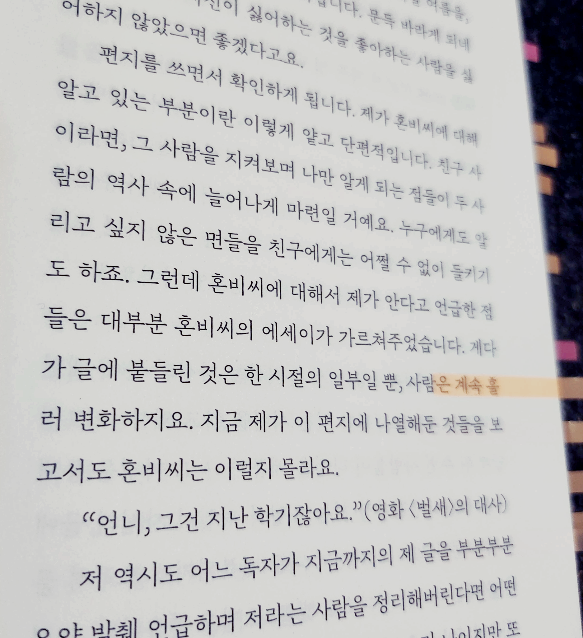 싫어하는 것을 좋아하는 사람을 싫
어하지 않았으면 좋겠다고요.
편지를 쓰면서 확인하게 됩니다. 제가 혼비씨에 대해
알고 있는 부분이란 이렇게 얄고 단편적입니다. 친구 사
이라면, 그 사람을 지켜보며 나만 알게 되는 점들이 두 사
람의 역사 속에 늘어나게 마련일 거예요. 누구에게도 알
리고 싶지 않은 면들을 친구에게는 어쩔 수 없이 들키기
도 하죠. 그런데 혼비씨에 대해서 제가 안다고 언급한 점
들은 대부분 혼비씨의 에세이가 가르쳐주었습니다. 게다
가 글에 붙들린 것은 한 시절의 일부일 뿐, 사람은 계속 흘
러 변화하지요. 지금 제가 이 편지에 나열해둔 것들을 보
고서도 혼비씨는 이럴지 몰라요.
“언니, 그건 지난 학기잖아요.”(영화 〈벌새〉의 대사)
저 역시도 어느 독자가 지금까지의 제 글을 부분부분
발췌 언급하며 저라는 사람을 정리해버린다면 어떤